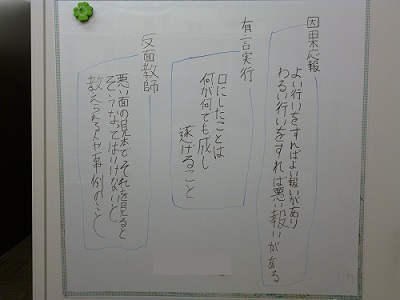 因果応報
よい行いをすればよい報いがあり
わるい行いをすれば悪い報いがある
有言実行
口にしたことは
何が何でも成し
遂げること
反面教師
悪い面の見本でそれを見ると
そうなってはいけないと
教えられる人や事例のこと